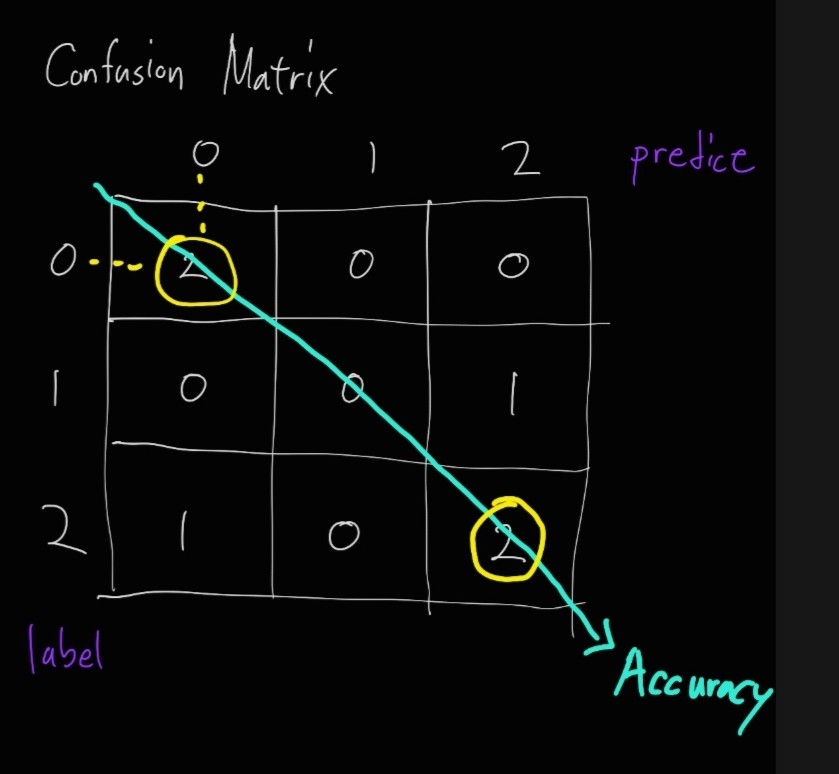 Confusion Matrix
0 1 2 predice
0 2 0 0
1 0 0 1
2 1 0 2
label
Accuracy